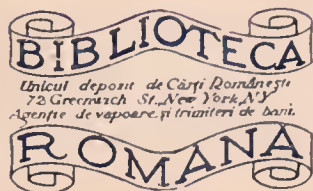 BIBLIOTECA
Unicul depozit de Cărți Românești
72 Greenwich St., New York, N.Y.
Agenție de vapoare și trimiteri de bani.
ROMANA